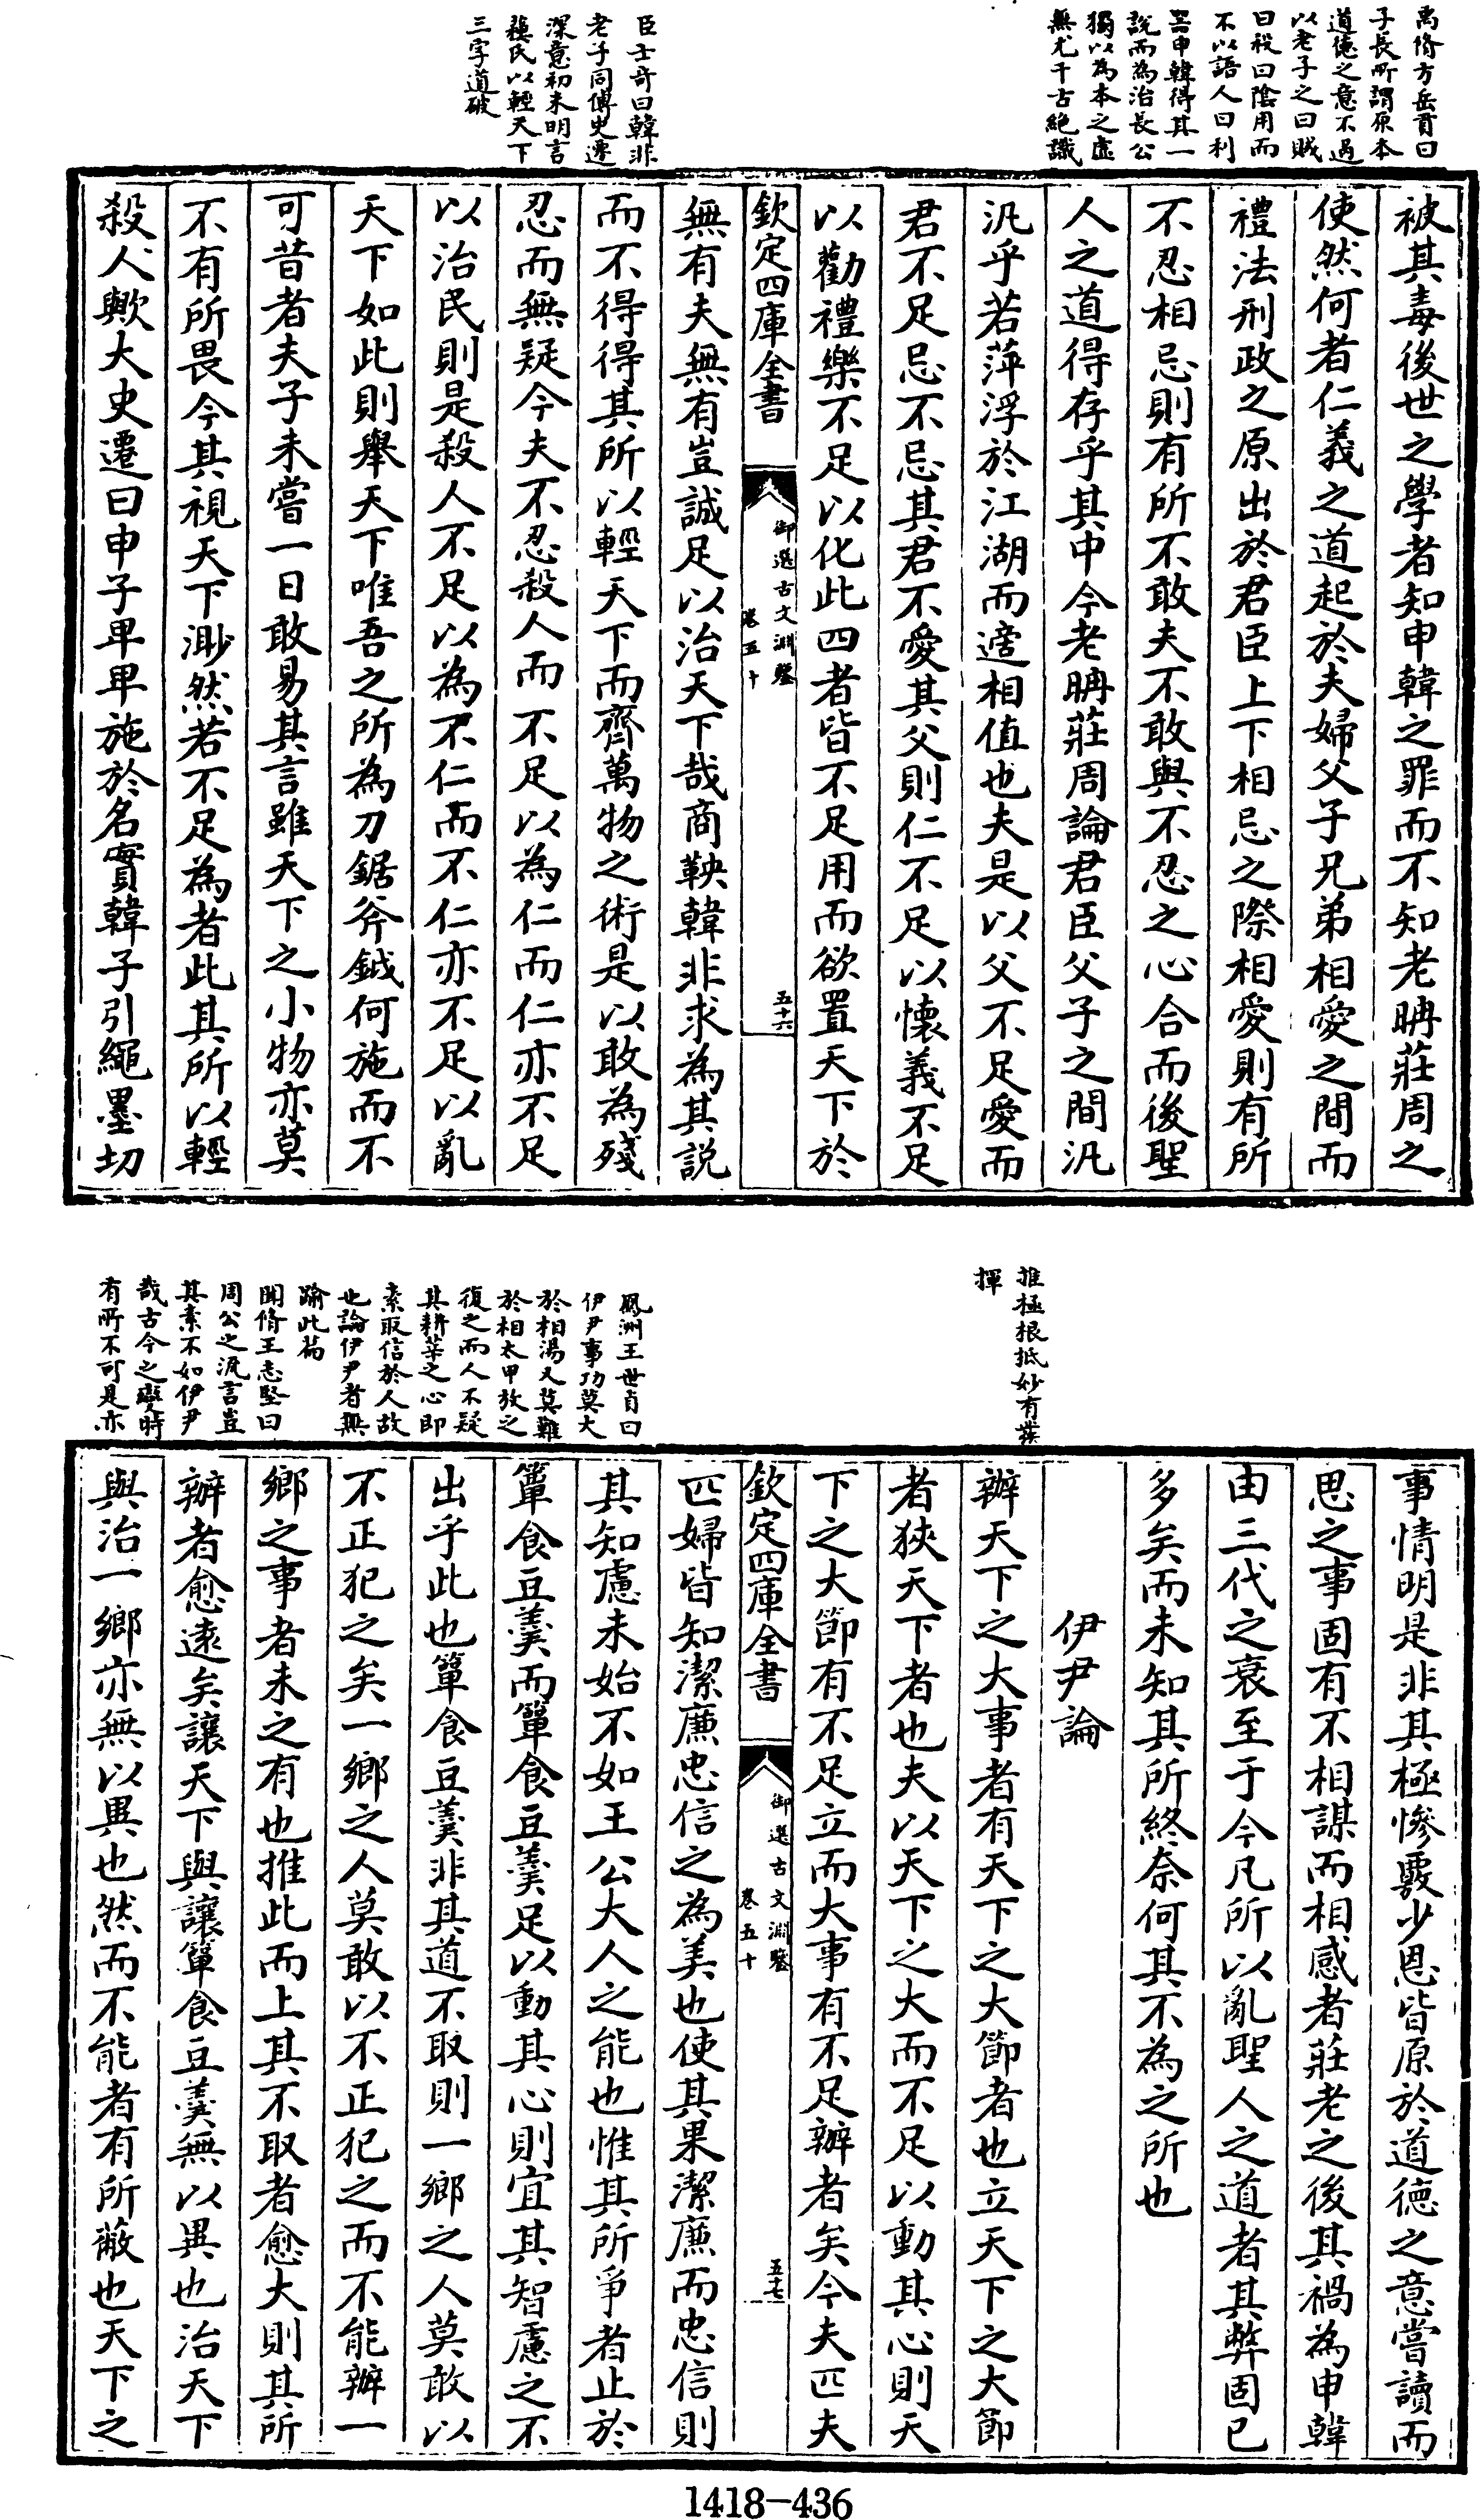 禹脩方岳貢曰
子長所謂原本
道德之意不過
以老子之曰賊
曰殺曰陰用而
不以語人曰利
器申韓得其一
說而為治長公
獨以為本之虛
無尤千古絶識
臣士奇曰韓非
老子同傳史遷
深意初未明言
蘇氏以輕天下
三字道破
被其毒後世之學者知申韓之罪而不知老聃莊周之
使然何者仁義之道起於夫婦父子兄弟相愛之間而
禮法刑政之原出於君臣上下相忌之際相愛則有所
不忍相忌則有所不敢夫不敢與不忍之心合而後聖
人之道得存乎其中今老聃莊周論君臣父子之間汎
汎乎若萍浮於江湖而適相值也夫是以父不足愛而
君不足忌不忌其君不愛其父則仁不足以懷義不足
以勸禮樂不足以化此四者皆不足用而欲置天下於
欽定四庫全書
御選古文淵鑒
卷五十
五十六
無有夫無有豈誠足以治天下哉商鞅韓非求為其說
而不得得其所以輕天下而齊萬物之術是以敢為殘
忍而無疑今夫不忍殺人而不足以為仁而仁亦不足
以治民則是殺人不足以為不仁而不仁亦不足以亂
天下如此則舉天下唯吾之所為刀鋸斧鉞何施而不
可昔者夫子未嘗一日敢易其言雖天下之小物亦莫
不有所畏今其視天下渺然若不足為者此其所以輕
殺人歟大史遷曰申子卑卑施於名實韓子引繩墨切
推極根抵妙有發
揮
鳳洲王世貞曰
伊尹事功莫大
於相湯又莫難
於相太甲放之
復之而人不疑
其耕莘之心即
素取信於人故
也論伊尹者無
踰此篇
聞脩王志堅曰
周公之流言豈
其素不如伊尹
哉古今之變時
有所不可是亦
事情明是非其極慘覈少恩皆原於道德之意嘗讀而
思之事固有不相謀而相感者莊老之後其禍為申韓
由三代之衰至于今凡所以亂聖人之道者其弊固已
多矣而未知其所終奈何其不為之所也
伊尹論
辦天下之大事者有天下之大節者也立天下之大節
者狹天下者也夫以天下之大而不足以動其心則天
下之大節有不足立而大事有不足辦者矣今夫匹夫
欽定四庫全書
御選古文淵鑒
卷五十
五十七
匹婦皆知潔廉忠信之為美也使其果潔廉而忠信則
其知慮未始不如王公大人之能也惟其所爭者止於
簞食豆羹而簞食豆羹足以動其心則宜其智慮之不
出乎此也簞食豆羹非其道不取則一鄉之人莫敢以
不正犯之矣一鄉之人莫敢以不正犯之而不能辦一
鄉之事者未之有也推此而上其不取者愈大則其所
辦者愈遠矣讓天下與讓簞食豆羹無以異也治天下
與治一鄉亦無以異也然而不能者有所蔽也天下之
1418-436